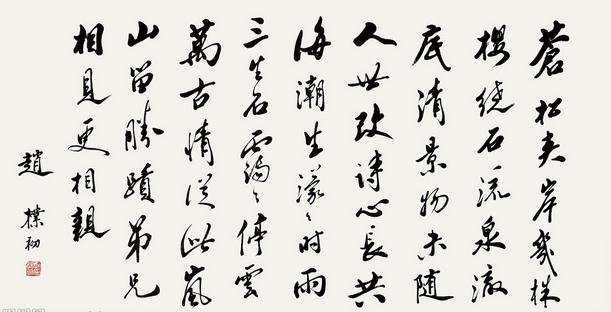 蒼松夾岸幾株
櫻繞石流泉澈
底清景物未随
人世改詩心長共
海潮生濛〻時雨
三生石靄〻停雲
萬古情從此嵐
山留勝蹟弟兄
相見更相親
趙樸初